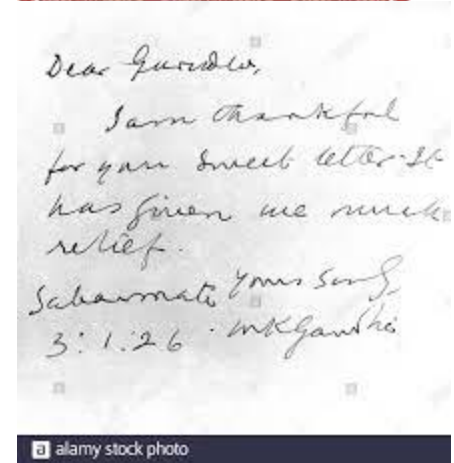 Dear Gurudev,
I am thankful
for your sweet letter. It
has given me much
relief.
Sabarmati Yours Sincy,
3:1:26. MKGandhi
a alamy stock photo